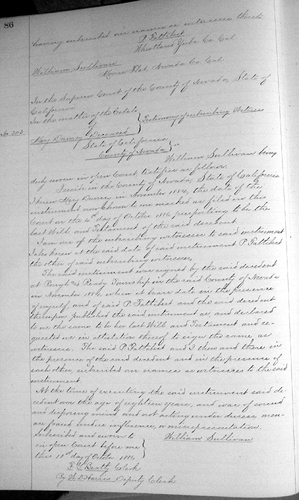 86
having subscribed our names as witnesses thereto
P. Pettibet
Wheatland Yuba Co Cal
William Sullivan
Flat Nevada Co Cal
In the Superior Court of the County of Nevada State of
California
In the matter of the Estate
of
Mary Downey Deceased
Testimony of subscribing Witness
State of California
County of Nevada
William Sullivan being
duly sworn in open Court testifies as follows
I reside in the County of Nevada State of California
I knew Mary Downey in November 1884, the date of the
instrument now shown to me marked as filed in this
Court on the day of October 1886 purporting to be the
last Will and Testament of the said decedent
I am one of the subscribing witnesses to said instrument
I also knew at the said date of said instrument P. Pettibet
the other of said subscribing witnesses.
The said instrument was signed by the said decedent
at Rough & Ready Township in the said County of Nevada
in November 1884 which it bears date in the presence
of myself and of said P. Pettibet and the said decedent
thereupon published the said instrument as and declared
to us the same to be her last Will and Testament and re-
quested us in attestation thereof to sign the same as
witnesses. The said P. Pettibet and I then and there in
the presence of the said decedent and in the presence of
each other subscribed our names as witnesses to the said
instrument
At the time of executing the said instrument said de-
cedent was the age of eighteen years, and was of sound
and disposing mind and not acting under duress, menace,
fraud, undue influence, or misrepresentation.
Subscribed and sworn to
in open Court before me
this 18th day of October 1886
William Sullivan
Clerk
By Deputy Clerk